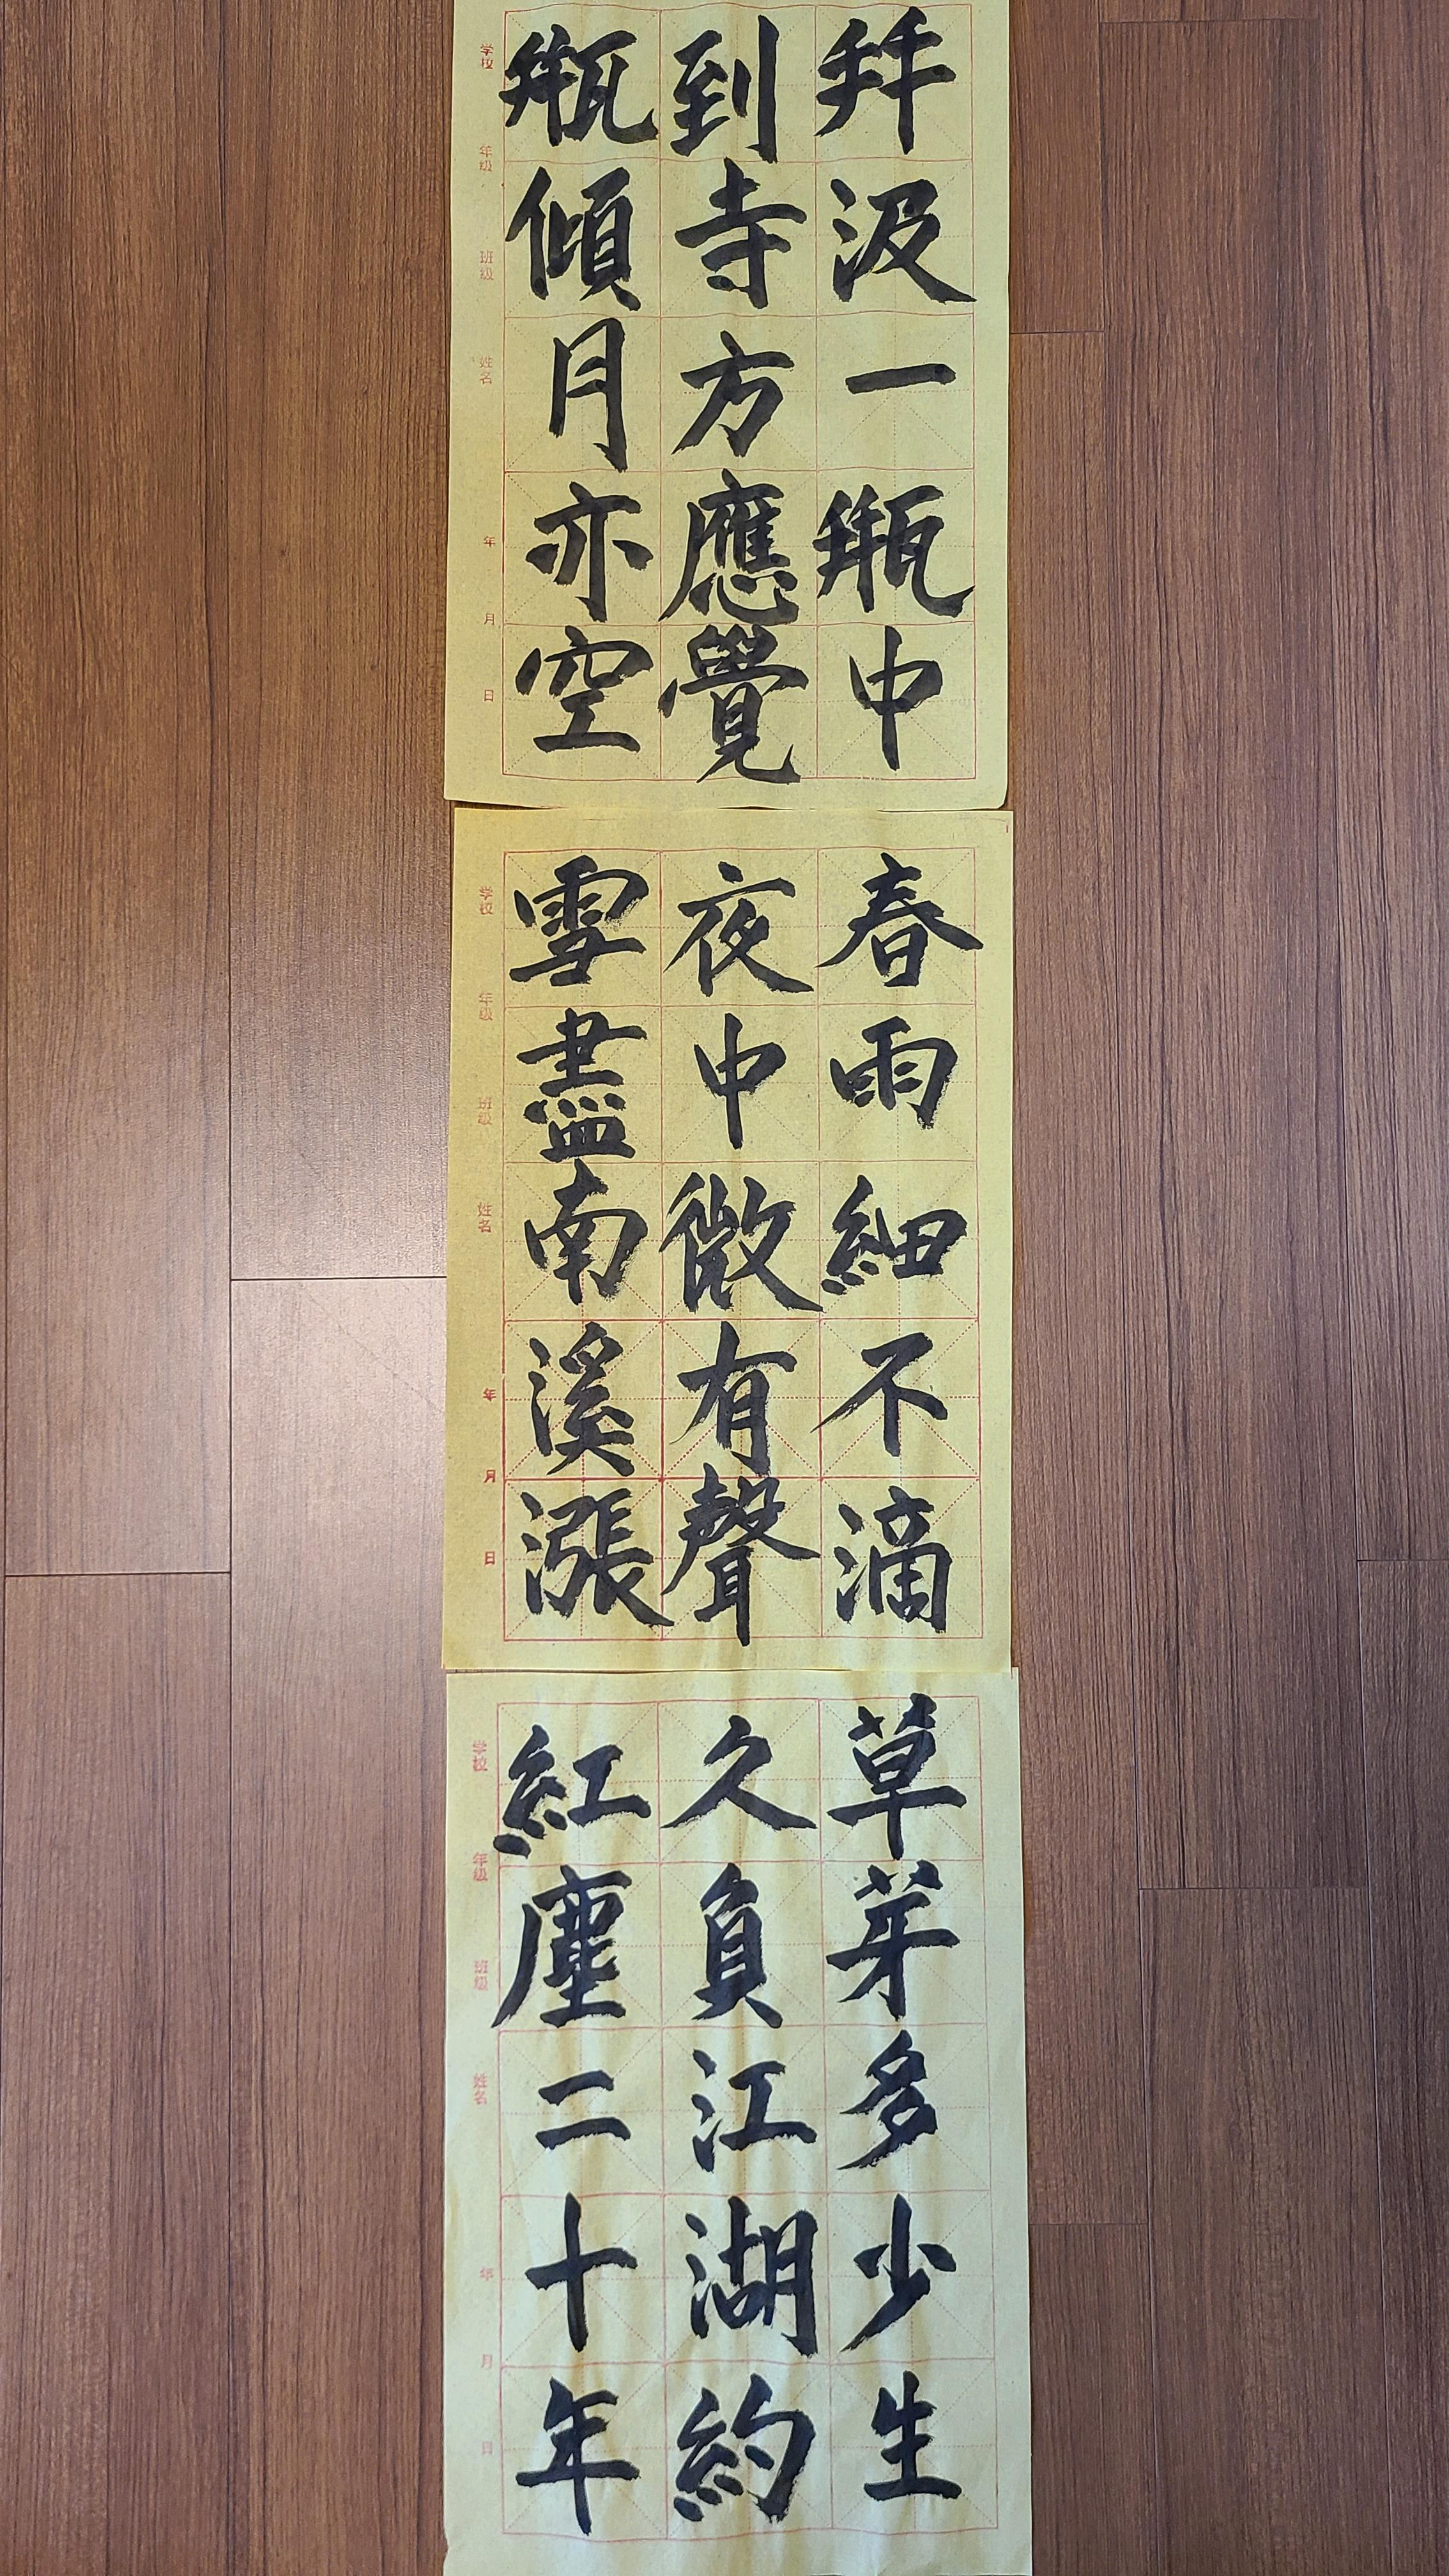 幷汲一甁中
到寺方應覺
甁傾月亦空
学校 年级 班级 姓名 年 月 日
春雨細不滴
夜中微有聲
雪盡南溪漲
学校 年级 班级 姓名 年 月 日
草芽多少生
久負江湖約
紅塵二十年
学校 年级 班级 姓名 年 月 日